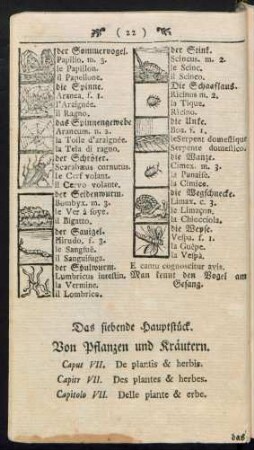 ( 22 )
der Sommervogel.
Papilio. m. 3.
le Papillon.
il Papellone.
die Spinne.
Aranea. f. 1.
l'Araignée.
il Ragno.
das Spinnengewebe
Araneum. n. 2.
la Toile d'araignée.
la Tela di ragno.
der Schröter.
Scarabæus cornutus.
le Cerf volant.
il Cervo volante.
der Seidenwurm.
Bombyx. m. 3.
le Ver à soye.
il Bigatto.
der Sauigel.
Hirudo. f. 3.
la Sangsuë.
il Sanguisuga.
der Spulwurm.
Lumbricus intestin.
la Vermine.
il Lombrico.
der Stink.
Scincus. m. 2.
le Scinc.
il Scinco.
Die Schaaflaus.
Ricinus m. 2.
la Tique.
Ricino.
die Unke.
Boa. f. 1.
le Serpent domestique
Serpente domestico.
die Wanze.
Cimex. m. 3.
la Punaise.
la Cimice.
die Wegschnecke.
Limax. c. 3.
le Limaçon.
la Chiocciola.
die Wespe.
Vespa. f. 1
la Guêpe.
la Vespa.
E cantu cognoscitur avis.
Man kennt den Vogel am
Gesang.
Das siebende Hauptstück.
Von Pflanzen und Kräutern.
Caput VII. De plantis & herbis.
Capitre VII. Des plantes & herbes.
Capitolo VII. Delle piante & erbe.
das